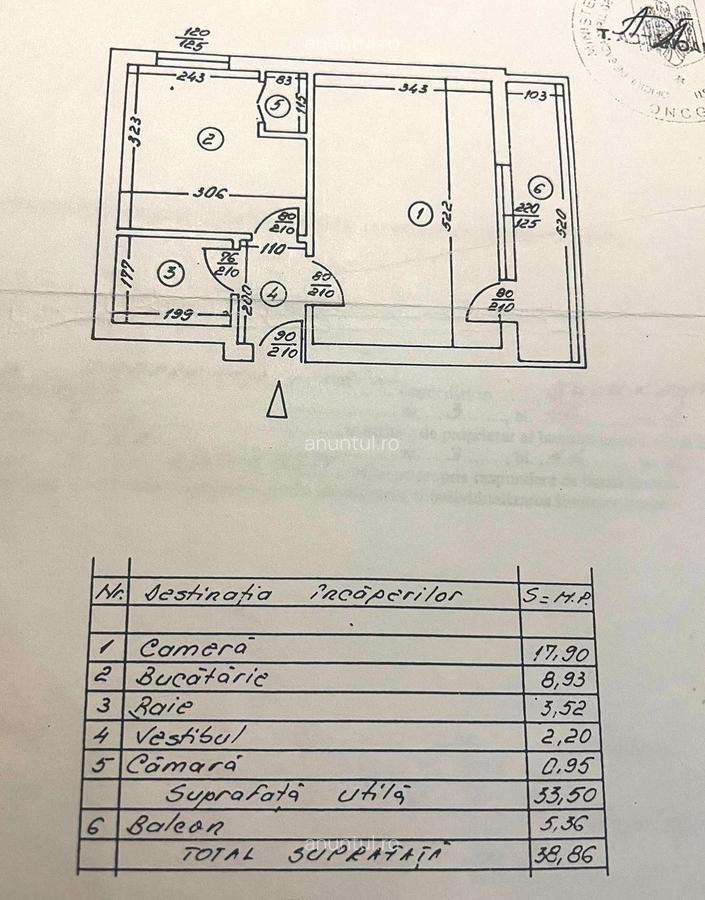 120
125
243
83
115
5
323
2
306
80
210
110
343
522
1
103
6
220
125
520
177
3
76
210
199
200
4
80
210
80
210
90
210
anuntul.ro
Nr. Destinația încăperilor S=M.P.
1 Cameră 17,90
2 Bucătărie 8,93
3 Baie 3,52
4 Vestibul 2,20
5 Cămară 0,95
Suprafață utilă 33,50
6 Balcon 5,36
anuntul.ro
TOTAL SUPRAFAȚĂ 38,86